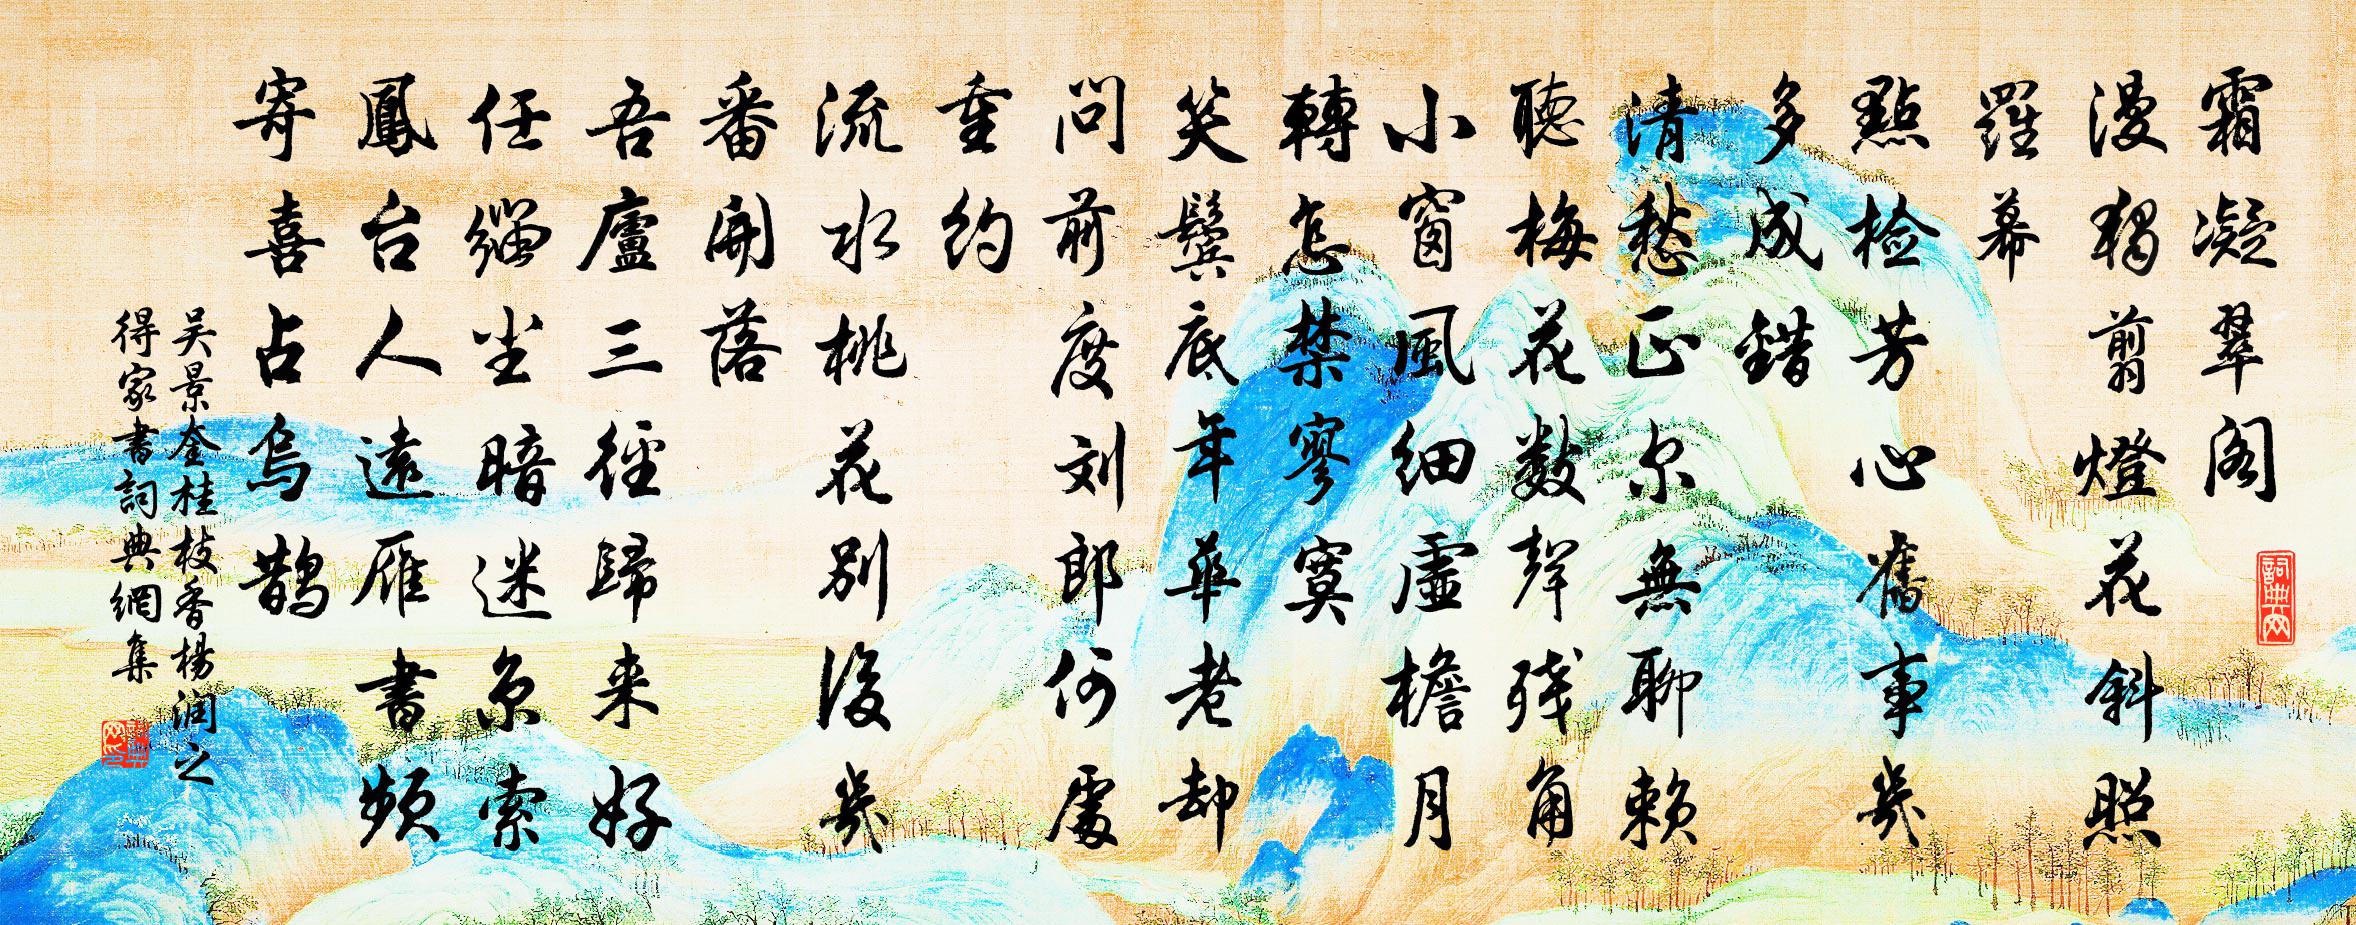 霜凝翠阁
漫獨剪燈花斜照
羅幕
點检芳心舊事幾
多成錯
清愁正尔無聊賴
聽梅花数聲残角
小窗風细虚檐月
轉怎禁寥寞
笑鬓底年華老却
問前度刘郎何處
重约
流水桃花別後幾
番開落
吾廬三徑歸来好
任缁尘暗迷京索
鳳台人遠雁書頻
寄喜占烏鹊
吴景奎桂枝香楊润之
得家書詞典網集
詞典网